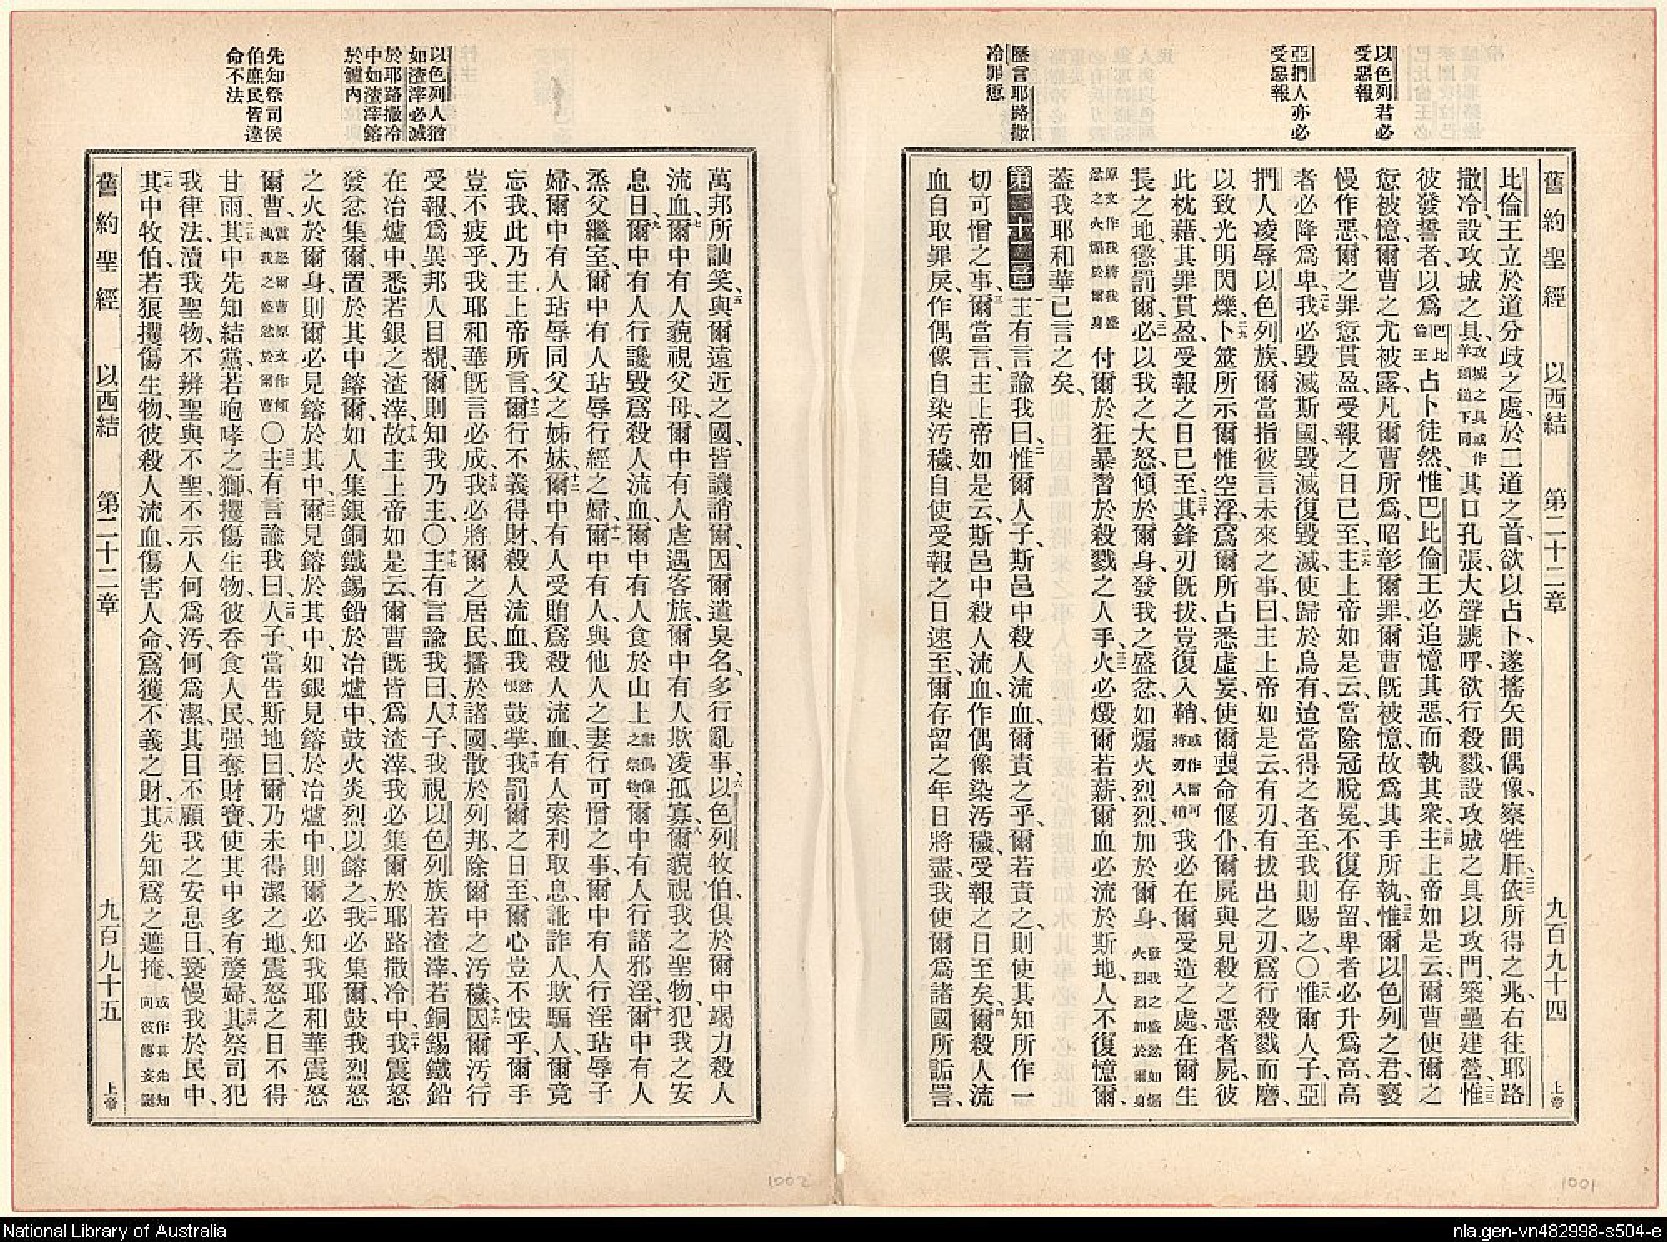 以色列君必
受惡報
亞捫人亦必
受惡報
歷言耶路撒
冷罪愆
舊約聖經 以西結 第二十二章 九百九十四 上帝
比倫王立於道分歧之處、於二道之首、欲以占卜、遂搖矢問偶像、察牲肝、二二依所得之兆、右往耶路
撒冷、設攻城之具、攻城之具或作羊頭鎚下同其口孔張、大聲號呼、欲行殺戮、設攻城之具以攻門、築壘建營、二三惟
彼發誓者、以爲巴比倫王占卜徒然、惟巴比倫王必追憶其惡、而執其衆、二四主上帝如是云、爾曹使爾之
愆被憶、爾曹之尤被露、凡爾曹所爲、昭彰爾罪、爾曹旣被憶、故爲其手所執、二五惟爾以色列之君、褻
慢作惡、爾之罪愆貫盈、受報之日已至、二六主上帝如是云、當除冠脫冕、不復存留、卑者必升爲高、高
者必降爲卑、二七我必毀滅斯國、毀滅復毀滅、使歸於烏有、迨當得之者至、我則賜之、〇二八惟爾人子、亞
捫人凌辱以色列族、爾當指彼言未來之事、曰、主上帝如是云、有刃、有拔出之刃、爲行殺戮而磨、
以致光明閃爍、二九卜筮所示爾惟空浮、爲爾所占悉虛妄、使爾喪命偃仆、爾屍與見殺之惡者屍、彼
此枕藉、其罪貫盈、受報之日已至、三十其鋒刃旣拔、豈復入鞘、或作爾可將刃入鞘我必在爾受造之處、在爾生
長之地、懲罰爾、三一必以我之大怒、傾於爾身、發我之盛忿、如煽火烈烈、加於爾身、發我之盛忿如煽火烈烈加於爾身
原文作我將我盛忿之火煽於爾身付爾於狂暴習於殺戮之人手、三二火必燬爾若薪、爾血必流於斯地、人不復憶爾、
蓋我耶和華已言之矣、
第二十二章 一主有言諭我曰、二惟爾人子、斯邑中殺人流血、爾責之乎、爾若責之、則使其知所作一
切可憎之事、三爾當言、主上帝如是云、斯邑中殺人流血、作偶像染汚穢、受報之日至矣、四爾殺人流
血、自取罪戾、作偶像自染汚穢、自使受報之日速至、爾存留之年日將盡、我使爾爲諸國所詬詈、
以色列人猶
如渣滓必滅
於耶路撒冷
中如渣滓鎔
於鑪內
先知祭司侯
伯庶民皆違
命不法
萬邦所訕笑、五與爾遠近之國、皆譏誚爾、因爾遺臭名、多行亂事、六以色列牧伯、俱於爾中竭力殺人
流血、七爾中有人藐視父母、爾中有人虐遇客旅、爾中有人欺凌孤寡、八爾藐視我之聖物、犯我之安
息日、九爾中有人行讒毀、爲殺人流血、爾中有人食於山上獻偶像之祭物爾中有人行諸邪淫、十爾中有人
烝父繼室、爾中有人玷辱行經之婦、十一爾中有人與他人之妻行可憎之事、爾中有人行淫玷辱子
婦、爾中有人玷辱同父之姊妹、十二爾中有人受賄、爲殺人流血、有人索利取息、訛詐人、欺騙人、爾竟
忘我、此乃主上帝所言、十三爾行不義得財、殺人流血、我忿恨鼓掌、十四我罰爾之日至、爾心豈不怯乎、爾手
豈不疲乎、我耶和華旣言必成、十五我必將爾之居民、播於諸國、散於列邦、除爾中之汚穢、十六因爾汚行
受報、爲異邦人目覩、爾則知我乃主、〇十七主有言諭我曰、十八人子、我視以色列族若渣滓、若銅錫鐵鉛
在冶爐中、悉若銀之渣滓、十九故主上帝如是云、爾曹旣皆爲渣滓、我必集爾於耶路撒冷中、二十我震怒
發忿集爾、置於其中鎔爾、如人集銀銅鐵錫鉛於冶爐中、鼓火炎烈以鎔之、二一我必集爾、鼓我烈怒
之火於爾身、則爾必見鎔於其中、二二爾見鎔於其中、如銀見鎔於冶爐中、則爾必知我耶和華震怒
爾曹、震怒爾曹原文作傾洩我之盛忿於爾曹〇二三主有言諭我曰、二四人子、當告斯地曰、爾乃未得潔之地、震怒之日不得
甘雨、二五其中先知結黨、若咆哮之獅、攫傷生物、彼吞食人民、强奪財寶、使其中多有嫠婦、二六其祭司犯
我律法、瀆我聖物、不辨聖與不聖、不示人何爲汚、何爲潔、其目不顧我之安息日、褻慢我於民中、
二七其中牧伯、若狼攫傷生物、彼殺人流血、傷害人命、爲獲不義之財、二八其先知爲之遮掩、或作其先知向彼傳妄誕
舊約聖經 以西結 第二十二章 九百九十五 上帝
1002
1001
National Library of Australia
nla.gen-vn482998-s504-e